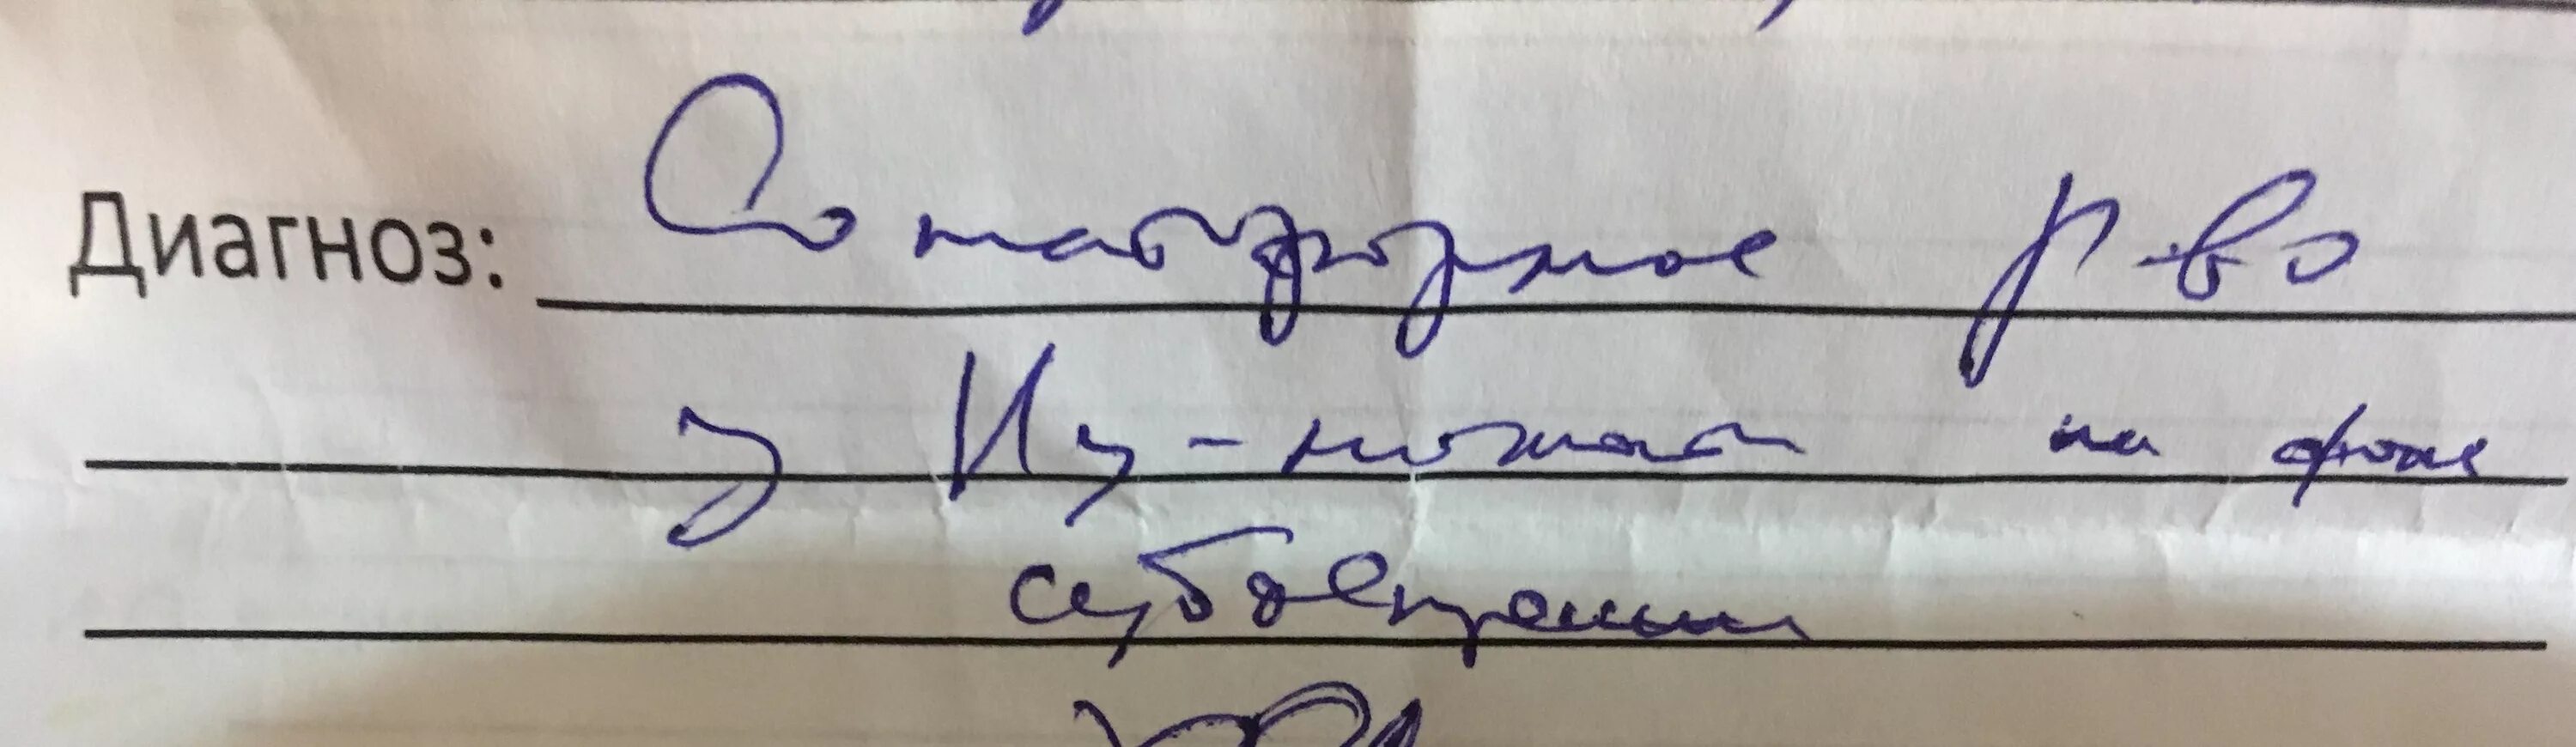 Диагноз: Соматоформное р-во
у на фоне
субдепрессии